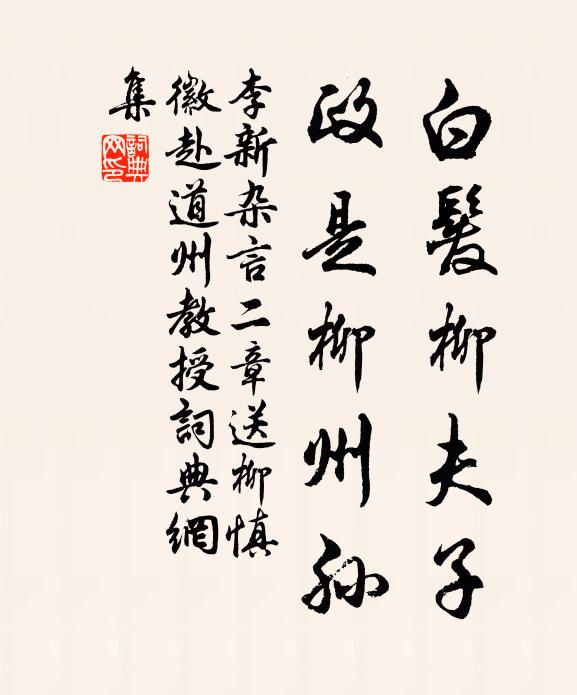 白髮柳夫子
政是柳州孙
李新杂言二章送柳慎
徽赴道州教授詞典網
集
詞典网